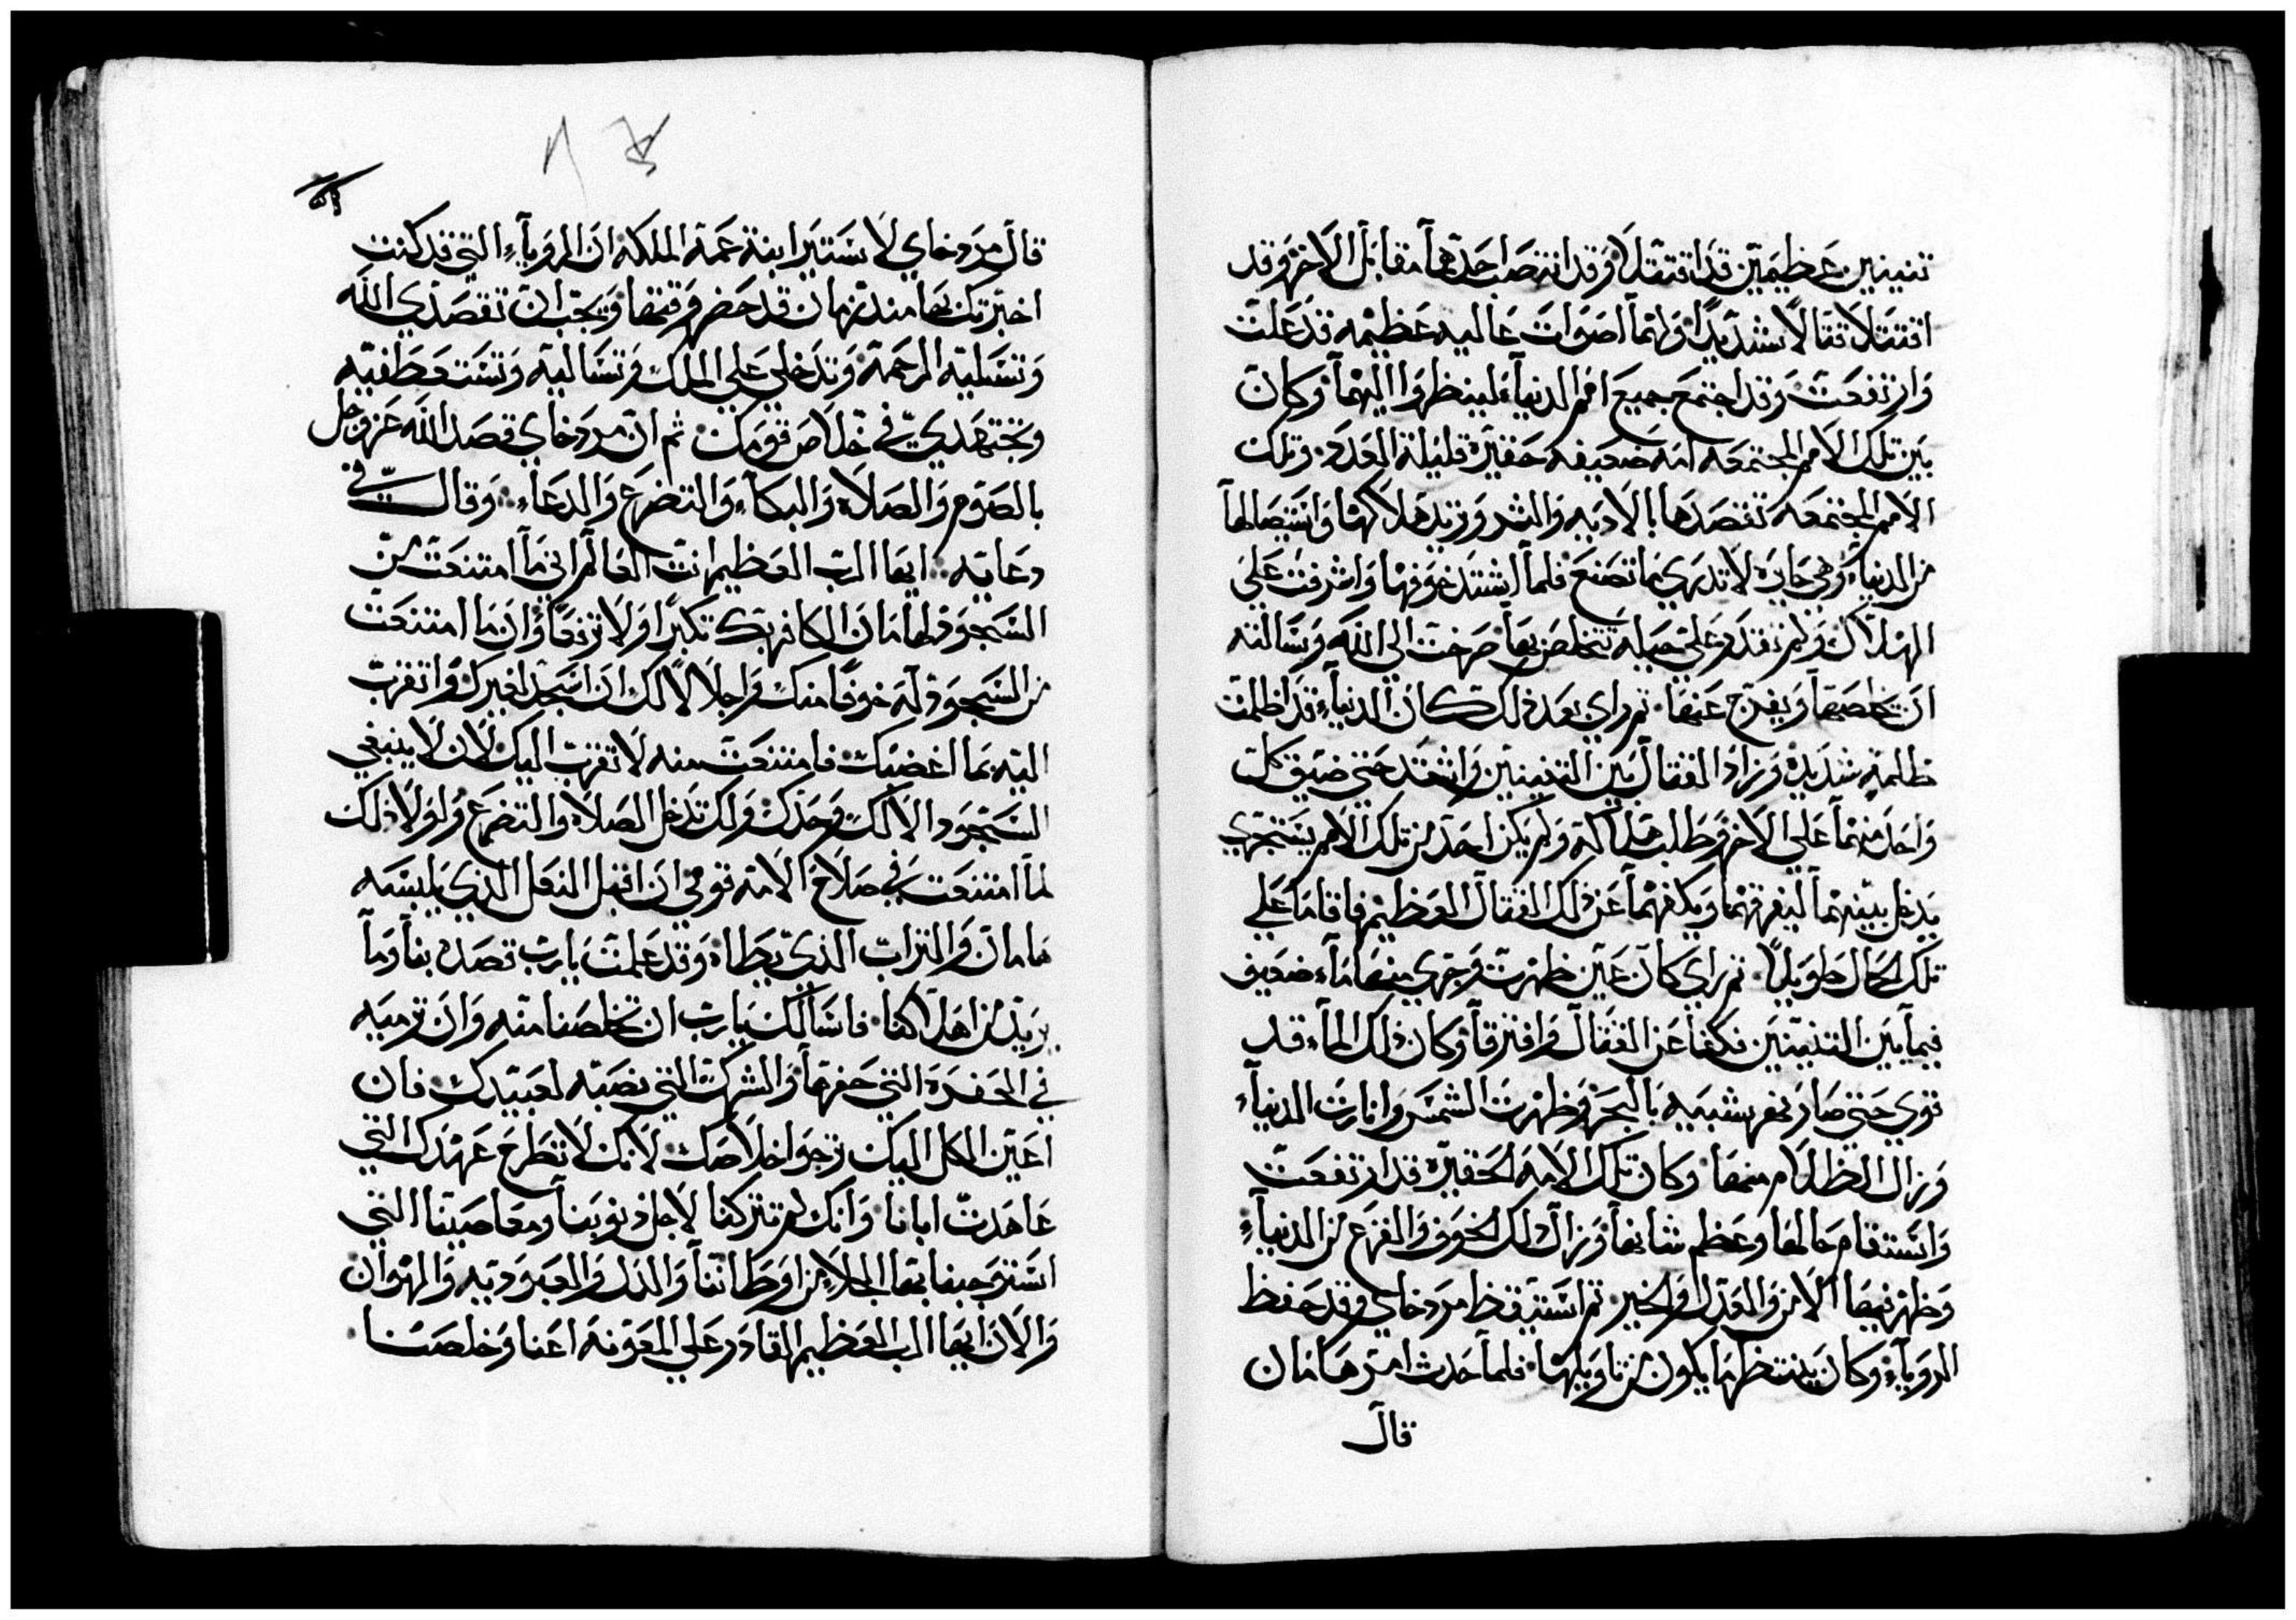 تنينين عظيمين قد اقتتلا وقد انتصب احدهما مقابل الاخر وقد
اقتتلا قتالا شديدا ولهما اصوات عاليه عظيمه قد علت
وارتفعت وقد اجتمع جميع امم الدنياء لينظروا اليهما وكان
بين تلك الامم المجتمعه امه ضعيفه حقيره قليلة العدد وتلك
الامم المجتمعه تقصدها بالاديه والشر وتريد هلاكها واستيصالها
من الدنياء وهي حايره لا تدري ما تصنع فلما اشتد خوفها واشرفت علي
الهلاك ولم تقدر علي حيله تتخلص بها صرخت الي الله وسالته
ان يخلصها ويفرج عنها ثم راي بعد ذلك كان الدنياء قد اظلمت
ظلمة شديده وزاد القتال بين التنينين واشتد حتي ضيق كل
واحد منهما علي الاخر وطلب هلاكه ولم يكن احد من تلك الامم يستجري
يدخل بينهما ليفرقهما ويكفهما عن ذلك القتال العظيم فاقاما علي
تلك الحال طويلا ثم راي كان عين ظهرت وجري منها ماء ضعيف
فيما بين التنينين فكفا عن القتال وافترقا وكان ذلك الماء قد
قوي حتي صار نهر شبيه بالبحر وظهرت الشمس وانارت الدنياء
وزال الظلام منها وكان تلك الامه الحقيره قد ارتفعت
واستقام حالها وعظم شانها وزال ذلك الخوف والفزع من الدنياء
وظهر فيها الامن والعدل والخير ثم استيقظ مردخاي وقد حفظ
الروياء وكان ينتظر ما يكون من تاويلها فلما حدث امر هامان
قال
قال مردخاي لاستير ابنة عمة الملكه ان الروياء التي قد كنت
اخبرتك بها منذ زمان قد حضر وقتها ويجب ان تقصدي الله
وتسليه الرحمة وتدخلي علي الملك وتساليه وتستعطفيه
وتجتهدي في خلاص قومك ثم ان مردخاي قصد الله عز وجل
بالصوم والصلاه والبكاء والتضرع والدعاء وقال في
دعايه ايها الرب العظيم انت العالم اني ما امتنعت من
السجود لهامان الكافر بك تكبرا ولا ترفعا وان ما امتنعت
من السجود له خوفا منك واجلالا لك ان اسجد لغيرك واتقرب
اليه بما اغضبك فامتنعت منه لاتقرب اليك لان لا ينبغي
السجود الا لك وحدك ولك تدخل الصلاه والتضرع ولولا ذلك
لما امتنعت في صلاح الامه قومي ان اقبل النعل الذي يلبسه
هامان والتراب الذي يطاه وقد علمت يارب قصده بنا وما
يريد من اهلاكنا فاسالك يارب ان تخلصنا منه وان ترميه
في الحفره التي حفرها والشرك التي نصبه لعبيدك فان
اعين الكل اليك ترجوا خلاصك لانك لا تطرح عهدك التي
عاهدت ابانا وانك لم تتركنا لاجل ذنوبنا ومعاصينا التي
استوجبنا بها الجلاء من اوطاننا والذل والعبوديه والهوان
والان ايها الرب العظيم القادر علي المعونه اعنا وخلصنا